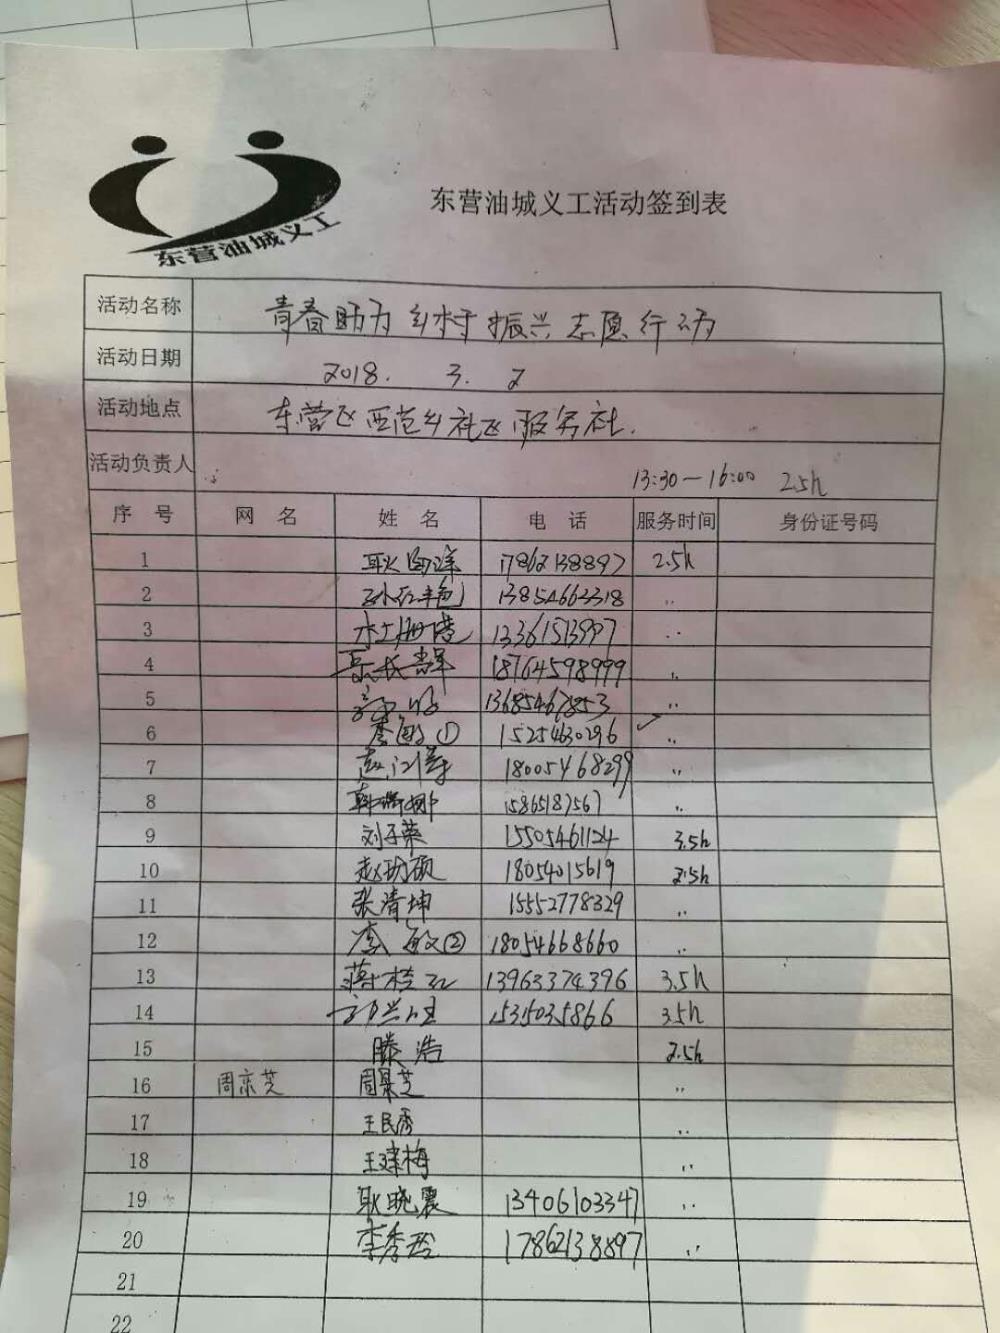 东营油城义工
东营油城义工活动签到表
活动名称 青春助力乡村振兴志愿行动
活动日期 2018. 3. 2
活动地点 东营区西范乡社区服务社.
活动负责人 13:30—16:00 2.5h
序 号 网 名 姓 名 电 话 服务时间 身份证号码
1 17862138897 2.5h
2 13854663318 〃
3 13361513997 〃
4 18764598999 〃
5 〃
6 李敏① 15254630296 〃
7 18005468299 〃
8 韩瑞娜 15865187567 〃
9 刘子荣 15505461124 3.5h
10 赵玥硕 18054015619 2.5h
11 张清坤 15552778329 〃
12 李敏② 18054668660 〃
13 蒋桂红 13963374396 3.5h
14 15315035866 3.5h
15 滕浩 2.5h
16 周景芝 周景芝 〃
17 王民秀 〃
18 王建梅 〃
19 耿晓震 13406103347 〃
20 李秀玲 17862138897 〃
21
22